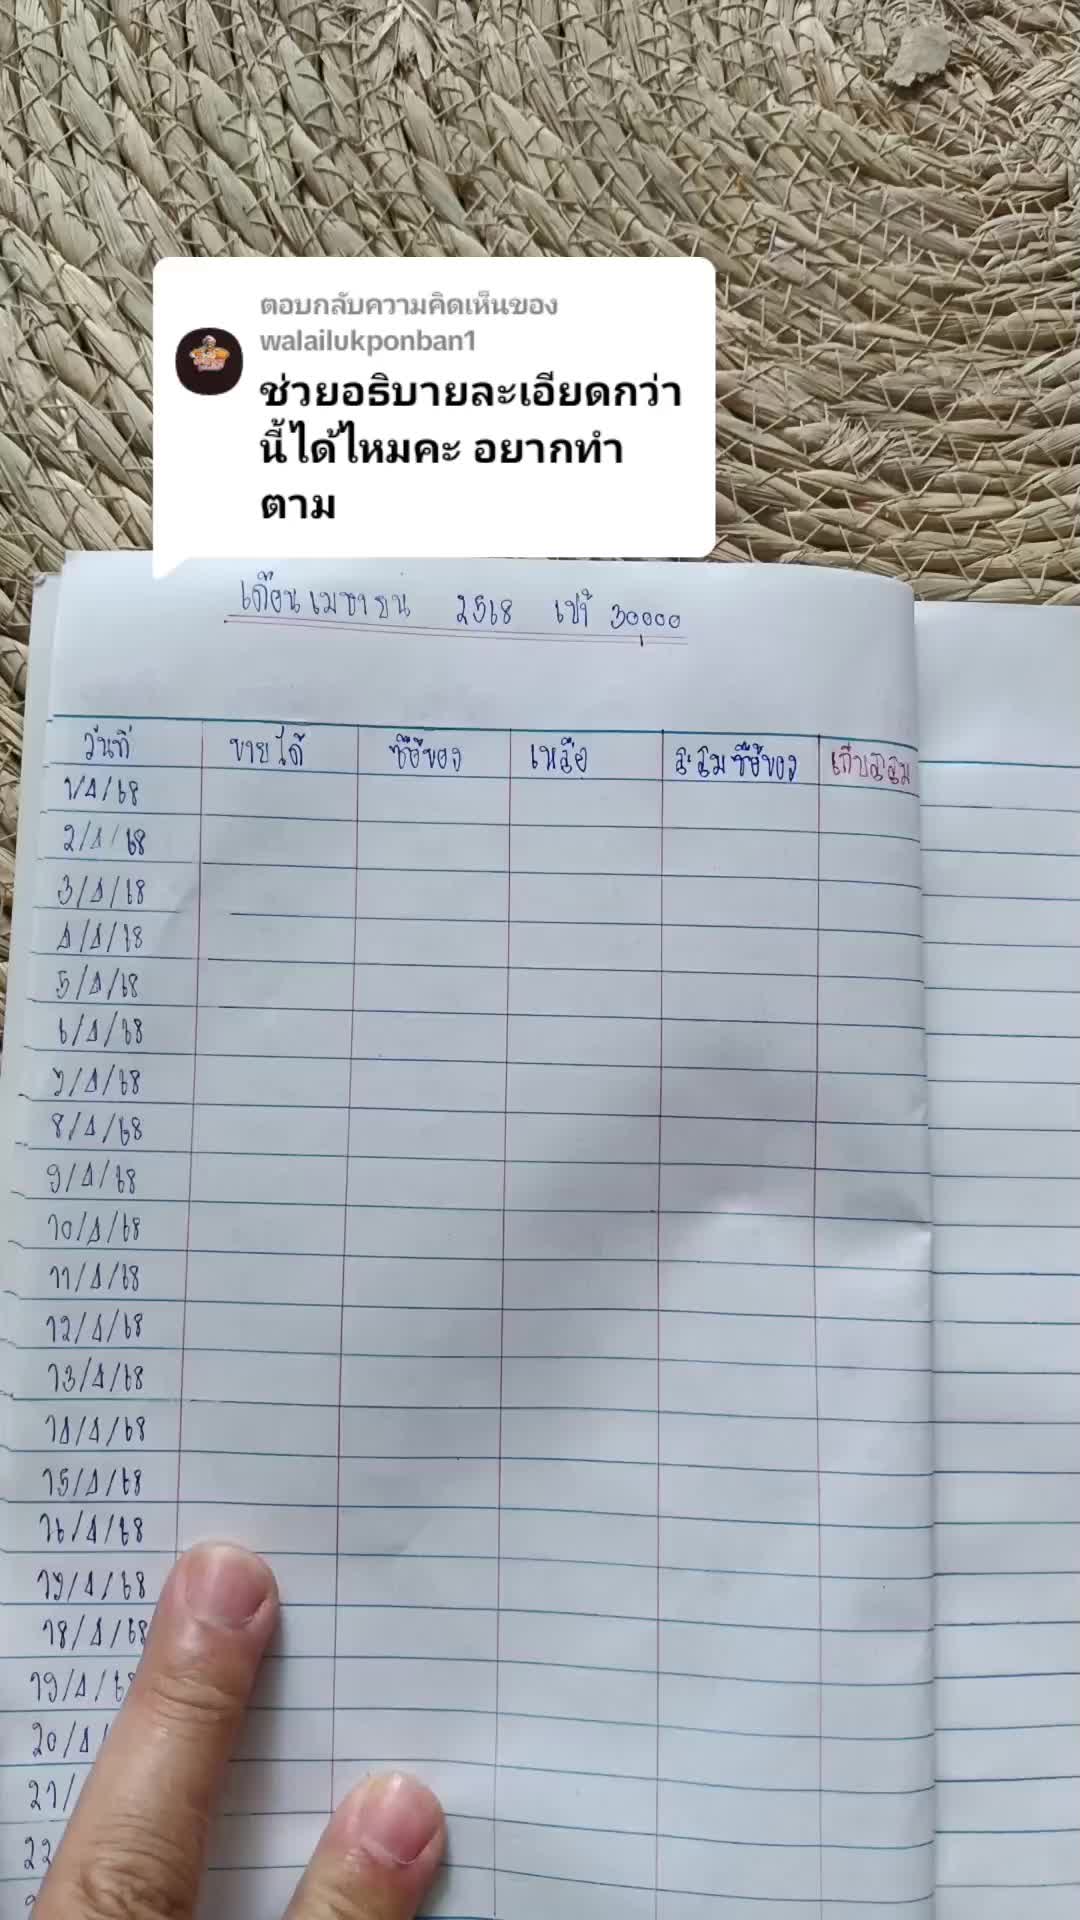 ตอบกลับความคิดเห็นของ
walailukponban1
ช่วยอธิบายละเอียดกว่า
นี้ได้ไหมคะ อยากทำ
ตาม
เดือน เมษายน 2568 เป้า 30,000
วันที่ ขายได้ ซื้อของ เหลือ สะสมซื้อของ เก็บสะสม
1/4/68
2/4/68
3/4/68
4/4/68
5/4/68
6/4/68
7/4/68
8/4/68
9/4/68
10/4/68
11/4/68
12/4/68
13/4/68
14/4/68
15/4/68
16/4/68
17/4/68
18/4/68
19/4/6
20/4/
21/
22